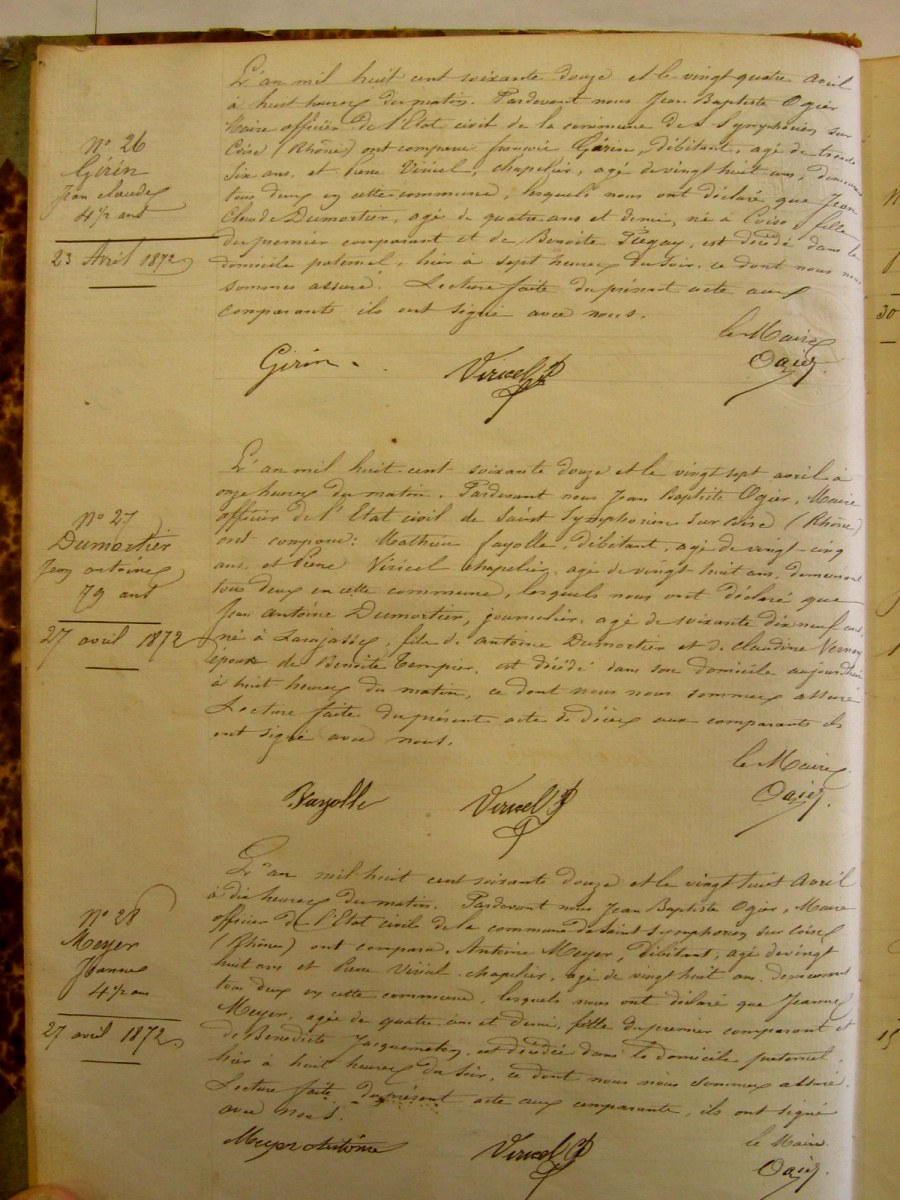 L'an mil huit cent soixante douze et le vingt quatre avril
à huit heures du matin. Pardevant nous Jean Baptiste Ogier
Maire officier de l'Etat civil de la commune de St Symphorien sur
Coise (Rhône) ont comparu françois Gérin, débitant, agé de trente
six ans, et Pierre Viricel, chapelier, agé de vingt huit ans, demeurant
tous deux en cette commune, lesquels nous ont déclaré que Jean
Claude Dumortier, agé de quatre ans et demi, né à Coise, fils
du premier comparant et de Benoite Pregay, est décédé dans le
domicile paternel, hier à sept heures du soir, ce dont nous nous
sommes assuré. Lecture faite du présent acte aux
comparants ils ont signé avec nous.
le Maire
Gérin Viricel Ogier
N° 26
Gérin
Jean Claude
4 1/2 ans
23 Avril 1872
L'an mil huit cent soixante douze et le vingt sept avril à
onze heures du matin. Pardevant nous Jean Baptiste Ogier, Maire
officier de l'Etat civil de Saint Symphorien sur Coise (Rhône)
ont comparu: Mathieu fayolle, débitant, agé de vingt-cinq
ans, et Pierre Viricel chapelier, agé de vingt huit ans, demeurant
tous deux en cette commune, lesquels nous ont déclaré que
Jean Antoine Dumortier, journalier, agé de soixante dix neuf ans,
né à Larajasse, fils d. Antoine Dumortier et d. Claudine Vernay
époux de Benoite Tempier, est décédé dans son domicile aujourd'hui
à huit heures du matin, ce dont nous nous sommes assuré
Lecture faite du présent acte de décès aux comparants ils
ont signé avec nous.
le Maire
Fayolle Viricel Ogier
N° 27
Dumortier
Jean antoine
79 ans
27 avril 1872
L'an mil huit cent soixante douze et le vingt huit Avril
à dix heures du matin. Pardevant nous Jean Baptiste Ogier, Maire
officier de l'Etat civile de la commune de Saint Symphorien sur Coise
(Rhône) ont comparu, Antoine Meyer, débitant, agé de vingt
huit ans et Pierre Viricel chapelier, agé de vingt huit ans, demeurant
tous deux en cette commune, lesquels nous ont déclaré que Jeanne
Meyer, agée de quatre ans et demi, fille du premier comparant et
de Benedicte Jacquemeton, est décédée dans le domicile paternel,
hier à huit heures du soir, ce dont nous nous sommes assuré.
Lecture faite du présent acte aux comparants, ils ont signé
avec nous.
le Maire
Meyer Antoine Viricel Ogier
N° 28
Meyer
Jeanne
4 1/2 ans
27 avril 1872
30
15